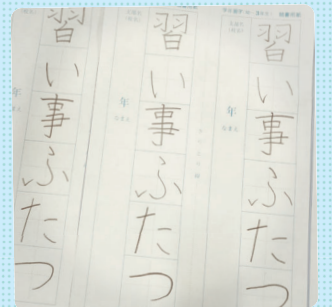 習い事ふたつ
習い事ふたつ
習い事ふたつ
年
年
年